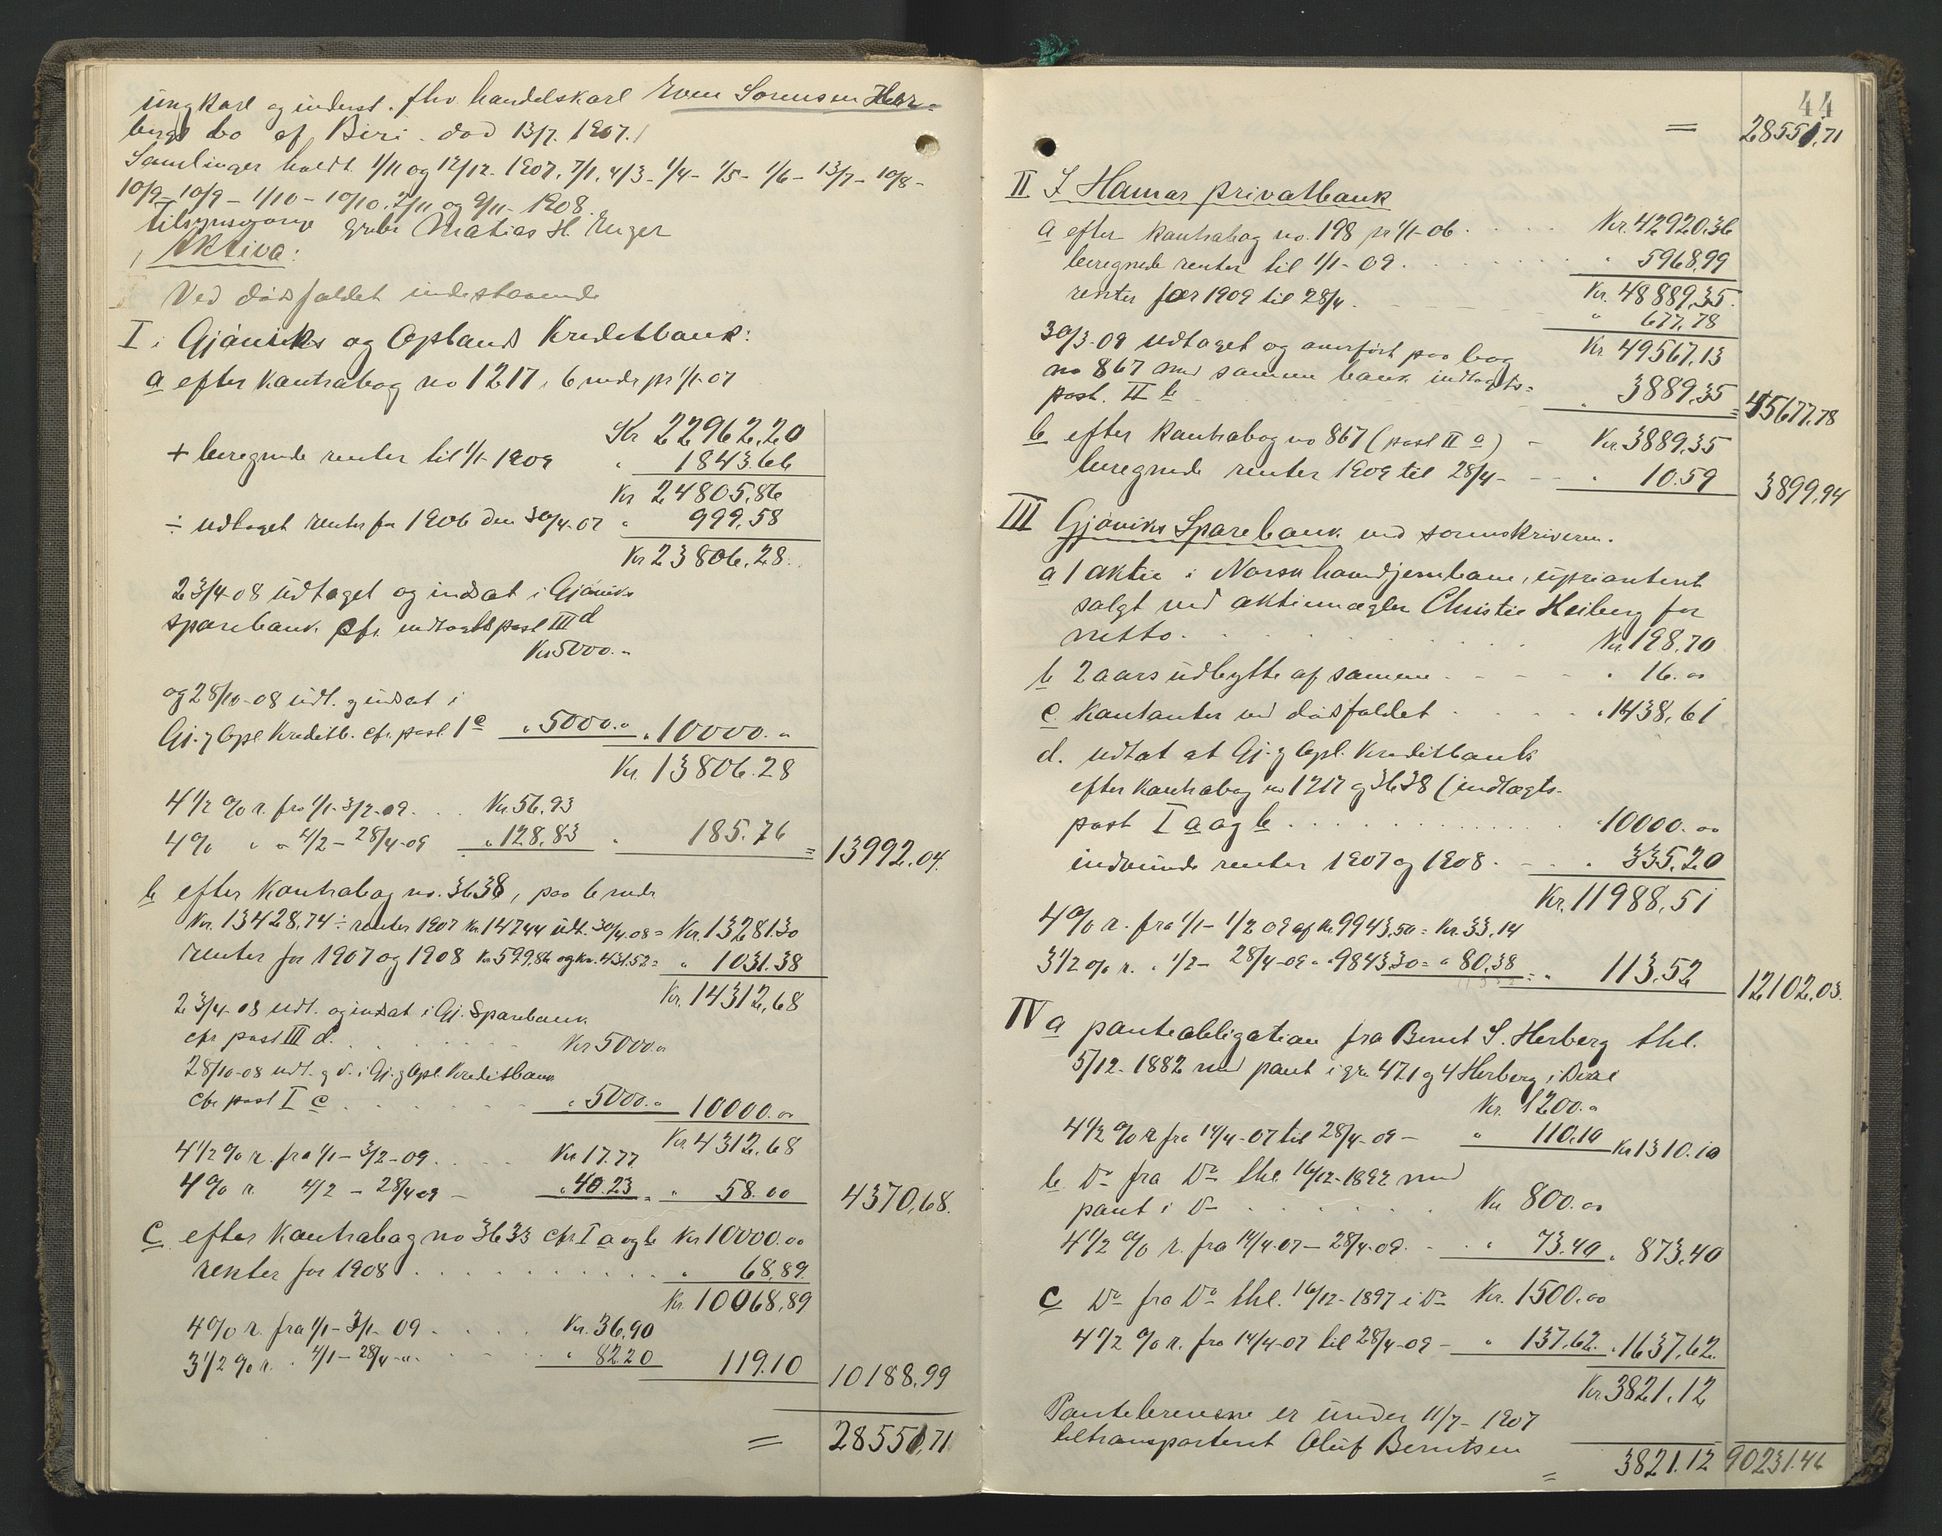 ungkarl og inderst. fhv. handelskarl Even Sørensen Her=
bergs bo af Biri. død 13/7. 1907.
Samlinger holdt 1/11 og 12/12. 1907, 7/1. 4/3 - 1/4 - 1/5 - 1/6 - 13/7 - 10/8 -
10/9 - 10/9 - 1/10 - 10/10. 2/11 og 9/11 - 1908.
Tilsynsværge gbr. Matias H. Enger
Aktiva:
Ved dødsfaldet indestaaende
I i Gjøviks og Oplands Kreditbank:
a efter kontrabog no 1217, 6 mdr pr 1/1-07
Kr 22962.20
+ beregnede renter til 1/1 1909 " 1843.66
Kr 24805.86
÷ udtaget renter for 1906 den 30/4-07 " 999.58
Kr 23806.28.
23/4-08 udtaget og indsat i Gjøviks
sparebank. cfr. indtægtspost III d
Kr 5000.-
og 28/10-08 udt. og indsat i
Gj. og Opl. Kreditb. cfr. post I c " 5000.- " 10000.-
Kr. 13806.28
4 1/2 % r. fra 1/1 - 3/2-09. . . Kr. 56.93
4 % " " 4/2 - 28/4-09 " 128.83 " 185.76 = 13992.04.
b efter kontrabog no. 3638, paa 6 mdr
Kr. 13428,74 ÷ renter 1907 kr 147,44 udt. 30/4-08 = Kr. 13281.30
renter for 1907 og 1908 kr 599,86 og kr. 431.52 = " 1031.38
Kr. 14312,68
23/4-08 udt. og indsat i Gj. Sparebank
cfr post III d. . . . Kr 5000.00
28/10-08 udt. og do. i Gj. og Opl. Kreditbank
cfr post I c . . . " 5000.- 10000.00
Kr 4312.68
4 1/2 % r. fra 1/1 - 3/2-09. . . Kr 17.77
4 % r. 4/2 - 28/4 09 - " 40.23 = " 58.00 4370,68.
c efter kontrabog no 3633 cfr I a og b Kr 10000.00
renter for 1908 . . . " 68,89.
Kr. 10068,89
4 % r. fra 1/1 - 3/1 09 . . . Kr. 36.90
3 1/2 % r. " 4/1 - 28/4 -". . . " 82.20 119.10 10188.99
= 28551,71
44
= 28551,71
II I Hamar privatbank
a efter kontrabog no. 198 pr 1/1-06. . . Kr. 42920.36
beregnede renter til 1/1-09. . . " 5968,99
Kr. 48889,35.
renter for 1909 til 28/4. " 677,78
Kr 49567,13
30/3-09 udtaget og overført paa bog
no 867 med samme bank indtægts-
post. II b " 3889,35 = 45677,78
b efter kontrabog no 867 (post II a) - Kr. 3889,35
beregnede renter 1909 til 28/4 - " 10.59 3899,94
III Gjøviks Sparebank ved sorenskriveren.
a 1 aktie i Norsk hovedjernbane, uprioritert
solgt ved aktiemægler Christie Heiberg for
netto. . . Kr. 198.70
b 2 aars udbytte af samme. . . " 16.00
c kontanter ved dødsfaldet . . . " 1438,61
d. udtat at Gj. og Opl. Kreditbank
efter kontrabog no 1217 og 3638 (indtægts-
post I a og b . . . " 10000.00
indvundne renter 1907 og 1908. - " 335.20
Kr. 11988,51
4 % r. fra 1/1 - 1/2 09 af kr 9943,50 = Kr. 33,14
3 1/2 % r. " 1/2 - 28/4-09 " " 9843.30 = " 80,38 = " 113,52 12102,03.
IV a panteobligation fra Bernt S. Herberg thl.
5/12-1882 med pant i gn 47.1 og 4 Herberg i Biri
Kr. 1200.-
4 1/2 % r fra 14/4-07 til 28/4-09 - " 110,10 Kr 1310.10
b Do fra Do thl 16/12-1892 med
pant i Do . . . Kr 800.00
4 1/2 % r. fra 14/4-07 - 28/4-09. - " 73.40 " 873.40
c Do fra Do thl. 16/12-1897 i Do Kr. 1500.00
4 1/2 % r. fra 14/4-07 til 28/4-09 - " 137,62. " 1637,62.
Kr. 3821,12
Pantebrevene er under 11/7-1907
tiltransporteret Oluf Berntsen
= 3821.12 90231.46